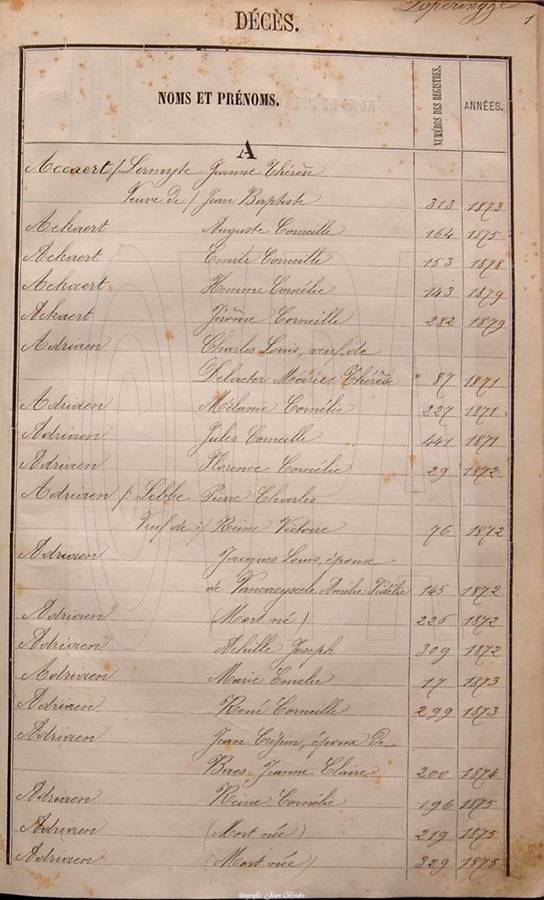 Poperinghe
1
DÉCÈS.
NOMS ET PRÉNOMS. NUMÉROS DES REGISTRES. ANNÉES.
A
Accaert / Lermyte Jeanne Thérèse
Veuve de / Jean Baptiste 313 1873
Ackaert Auguste Corneille 164 1875
Ackaert Emile Corneille 153 1878
Ackaert Hemma Cornélie 143 1879
Ackaert Jérôme Corneille 282 1879
Adriaen Charles Louis, veuf de
Delacter Marie Thérèse 87 1871
Adriaen Mélanie Cornélie 227 1871
Adriaen Jules Corneille 441 1871
Adriaen Florence Cornélie 29 1872
Adriaen /: Lebbe Pierre Charles
Veuf de :/ Reine Victoire 76 1872
Adriaen Jacques Louis, époux
de Amélie Fidélie 145 1872
Adriaen (Mort né) 226 1872
Adriaen Achille Joseph 309 1872
Adriaen Marie Emelie 17 1873
Adriaen René Corneille 299 1873
Adriaen Jean Crépin, époux de
Baes Jeanne Claire 200 1874
Adriaen Reine Cornélie 196 1875
Adriaen (Mort née) 219 1875
Adriaen (Mort née) 329 1875